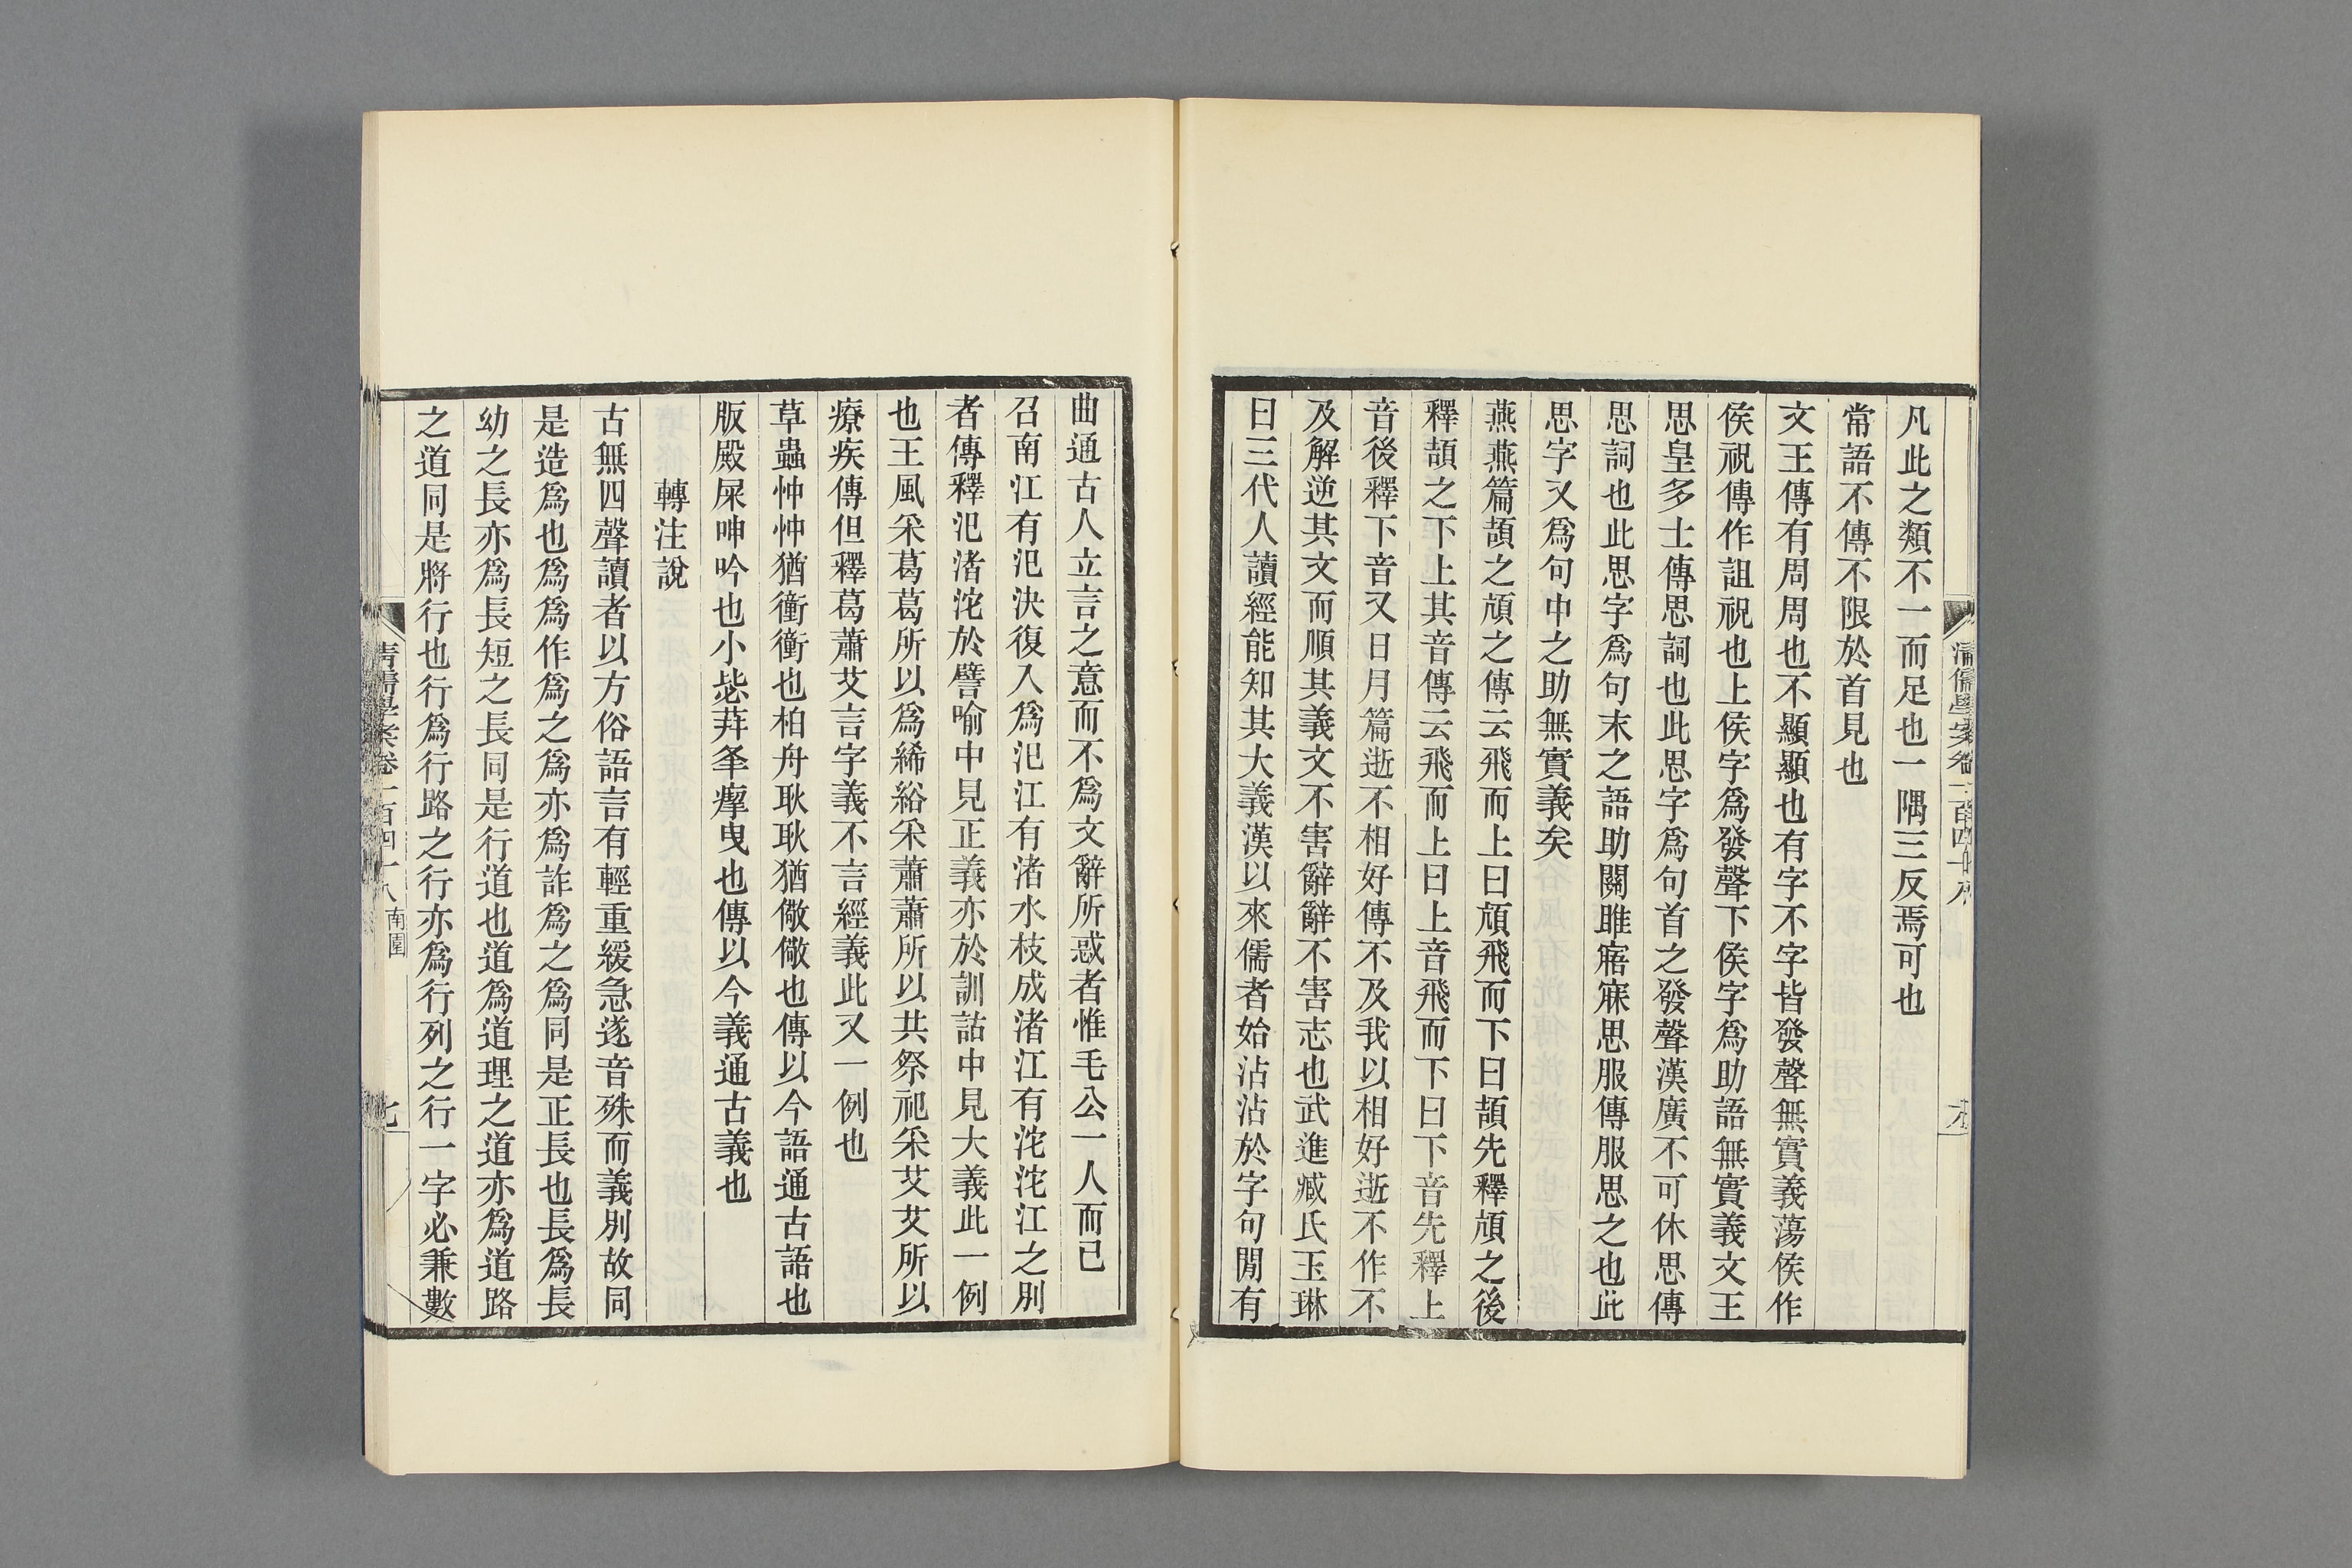 凡此之類不一而足也一隅三反焉可也
常語不傳不限於首見也
文王傳有周周也不顯顯也有字不字皆發聲無實義蕩侯作
侯祝傳作詛祝也上侯字爲發聲下侯字爲助語無實義文王
思皇多士傳思詞也此思字爲句首之發聲漢廣不可休思傳
思詞也此思字爲句末之語助關雎寤寐思服傳服思之也此
思字又爲句中之助無實義矣
燕燕篇頡之頏之傳云飛而上曰頏飛而下曰頡先釋頏之後
釋頡之下上其音傳云飛而上曰上音飛而下曰下音先釋上
音後釋下音又日月篇逝不相好傳不及我以相好逝不作不
及解逆其文而順其義文不害辭辭不害志也武進臧氏玉琳
曰三代人讀經能知其大義漢以來儒者始沾沾於字句閒有
曲通古人立言之意而不爲文辭所惑者惟毛公一人而已
召南江有汜決復入爲汜江有渚水枝成渚江有沱沱江之別
者傳釋汜渚沱於譬喻中見正義亦於訓詁中見大義此一例
也王風采葛葛所以爲絺綌采蕭蕭所以共祭祀采艾艾所以
療疾傳但釋葛蕭艾言字義不言經義此又一例也
草蟲忡忡猶衝衝也柏舟耿耿猶儆儆也傳以今語通古語也
版殿屎呻吟也小毖荓夆瘳曳也傳以今義通古義也
轉注說
古無四聲讀者以方俗語言有輕重緩急遂音殊而義別故同
是造爲也爲爲作爲之爲亦爲詐爲之爲同是正長也長爲長
幼之長亦爲長短之長同是行道也道爲道理之道亦爲道路
之道同是將行也行爲行路之行亦爲行列之行一字必兼數
清儒學案卷一百四十八
南園
七